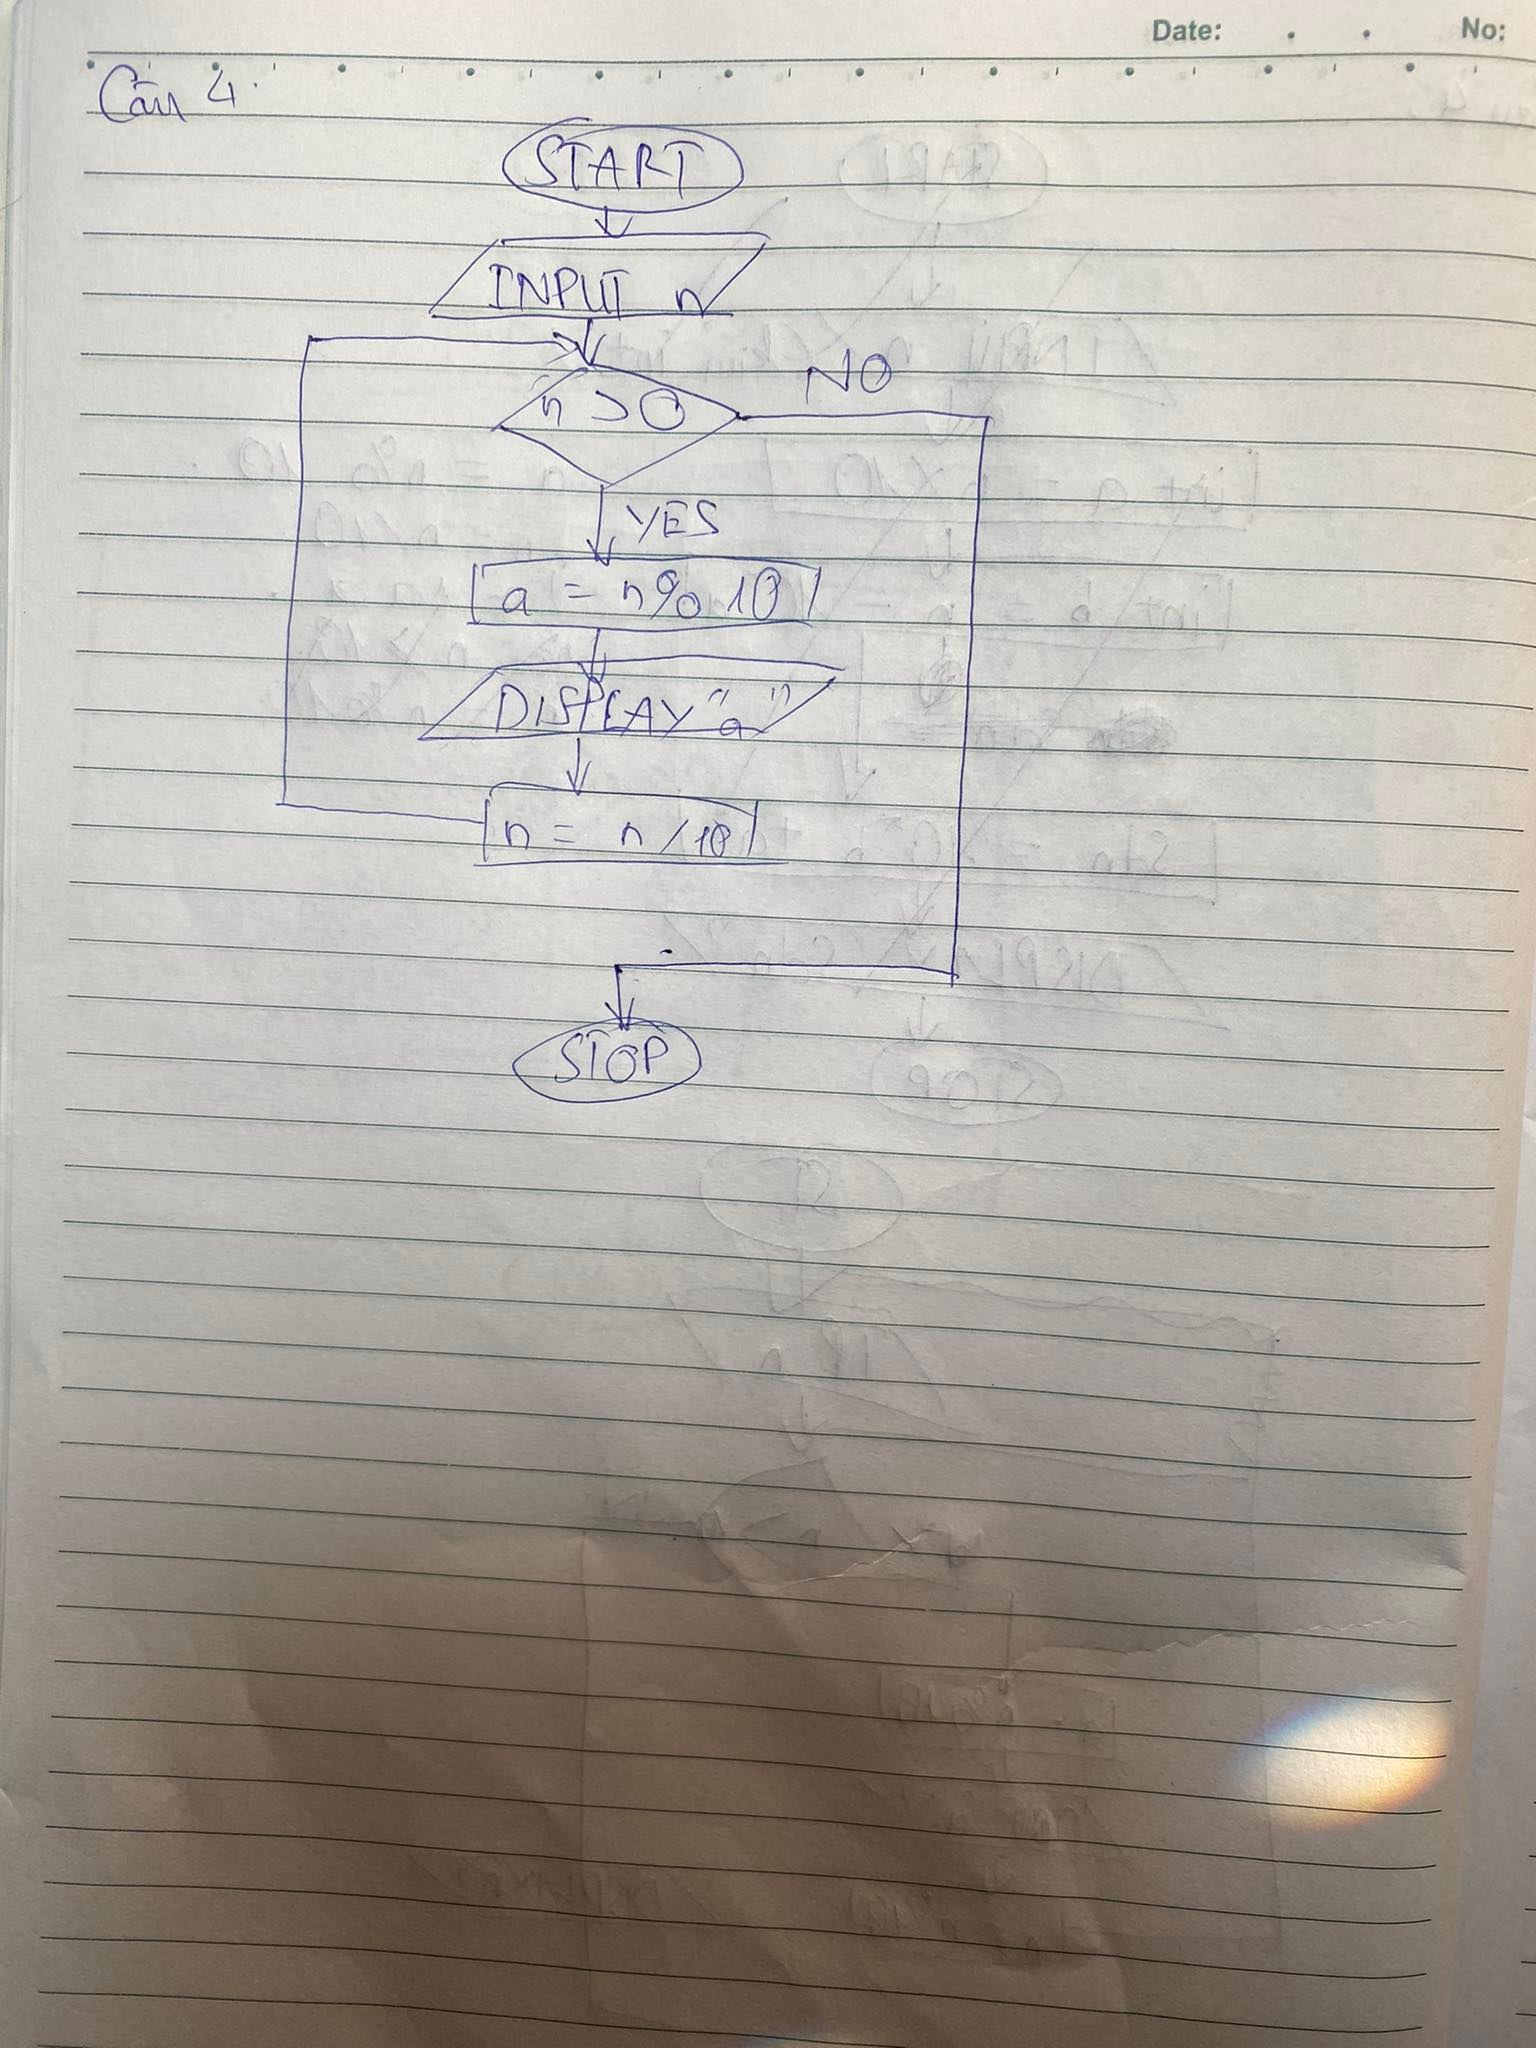 Date: . . No:
Câu 4.
START
INPUT n
n > 0
NO
YES
a = n % 10
DISPLAY "a"
n = n / 10
STOP